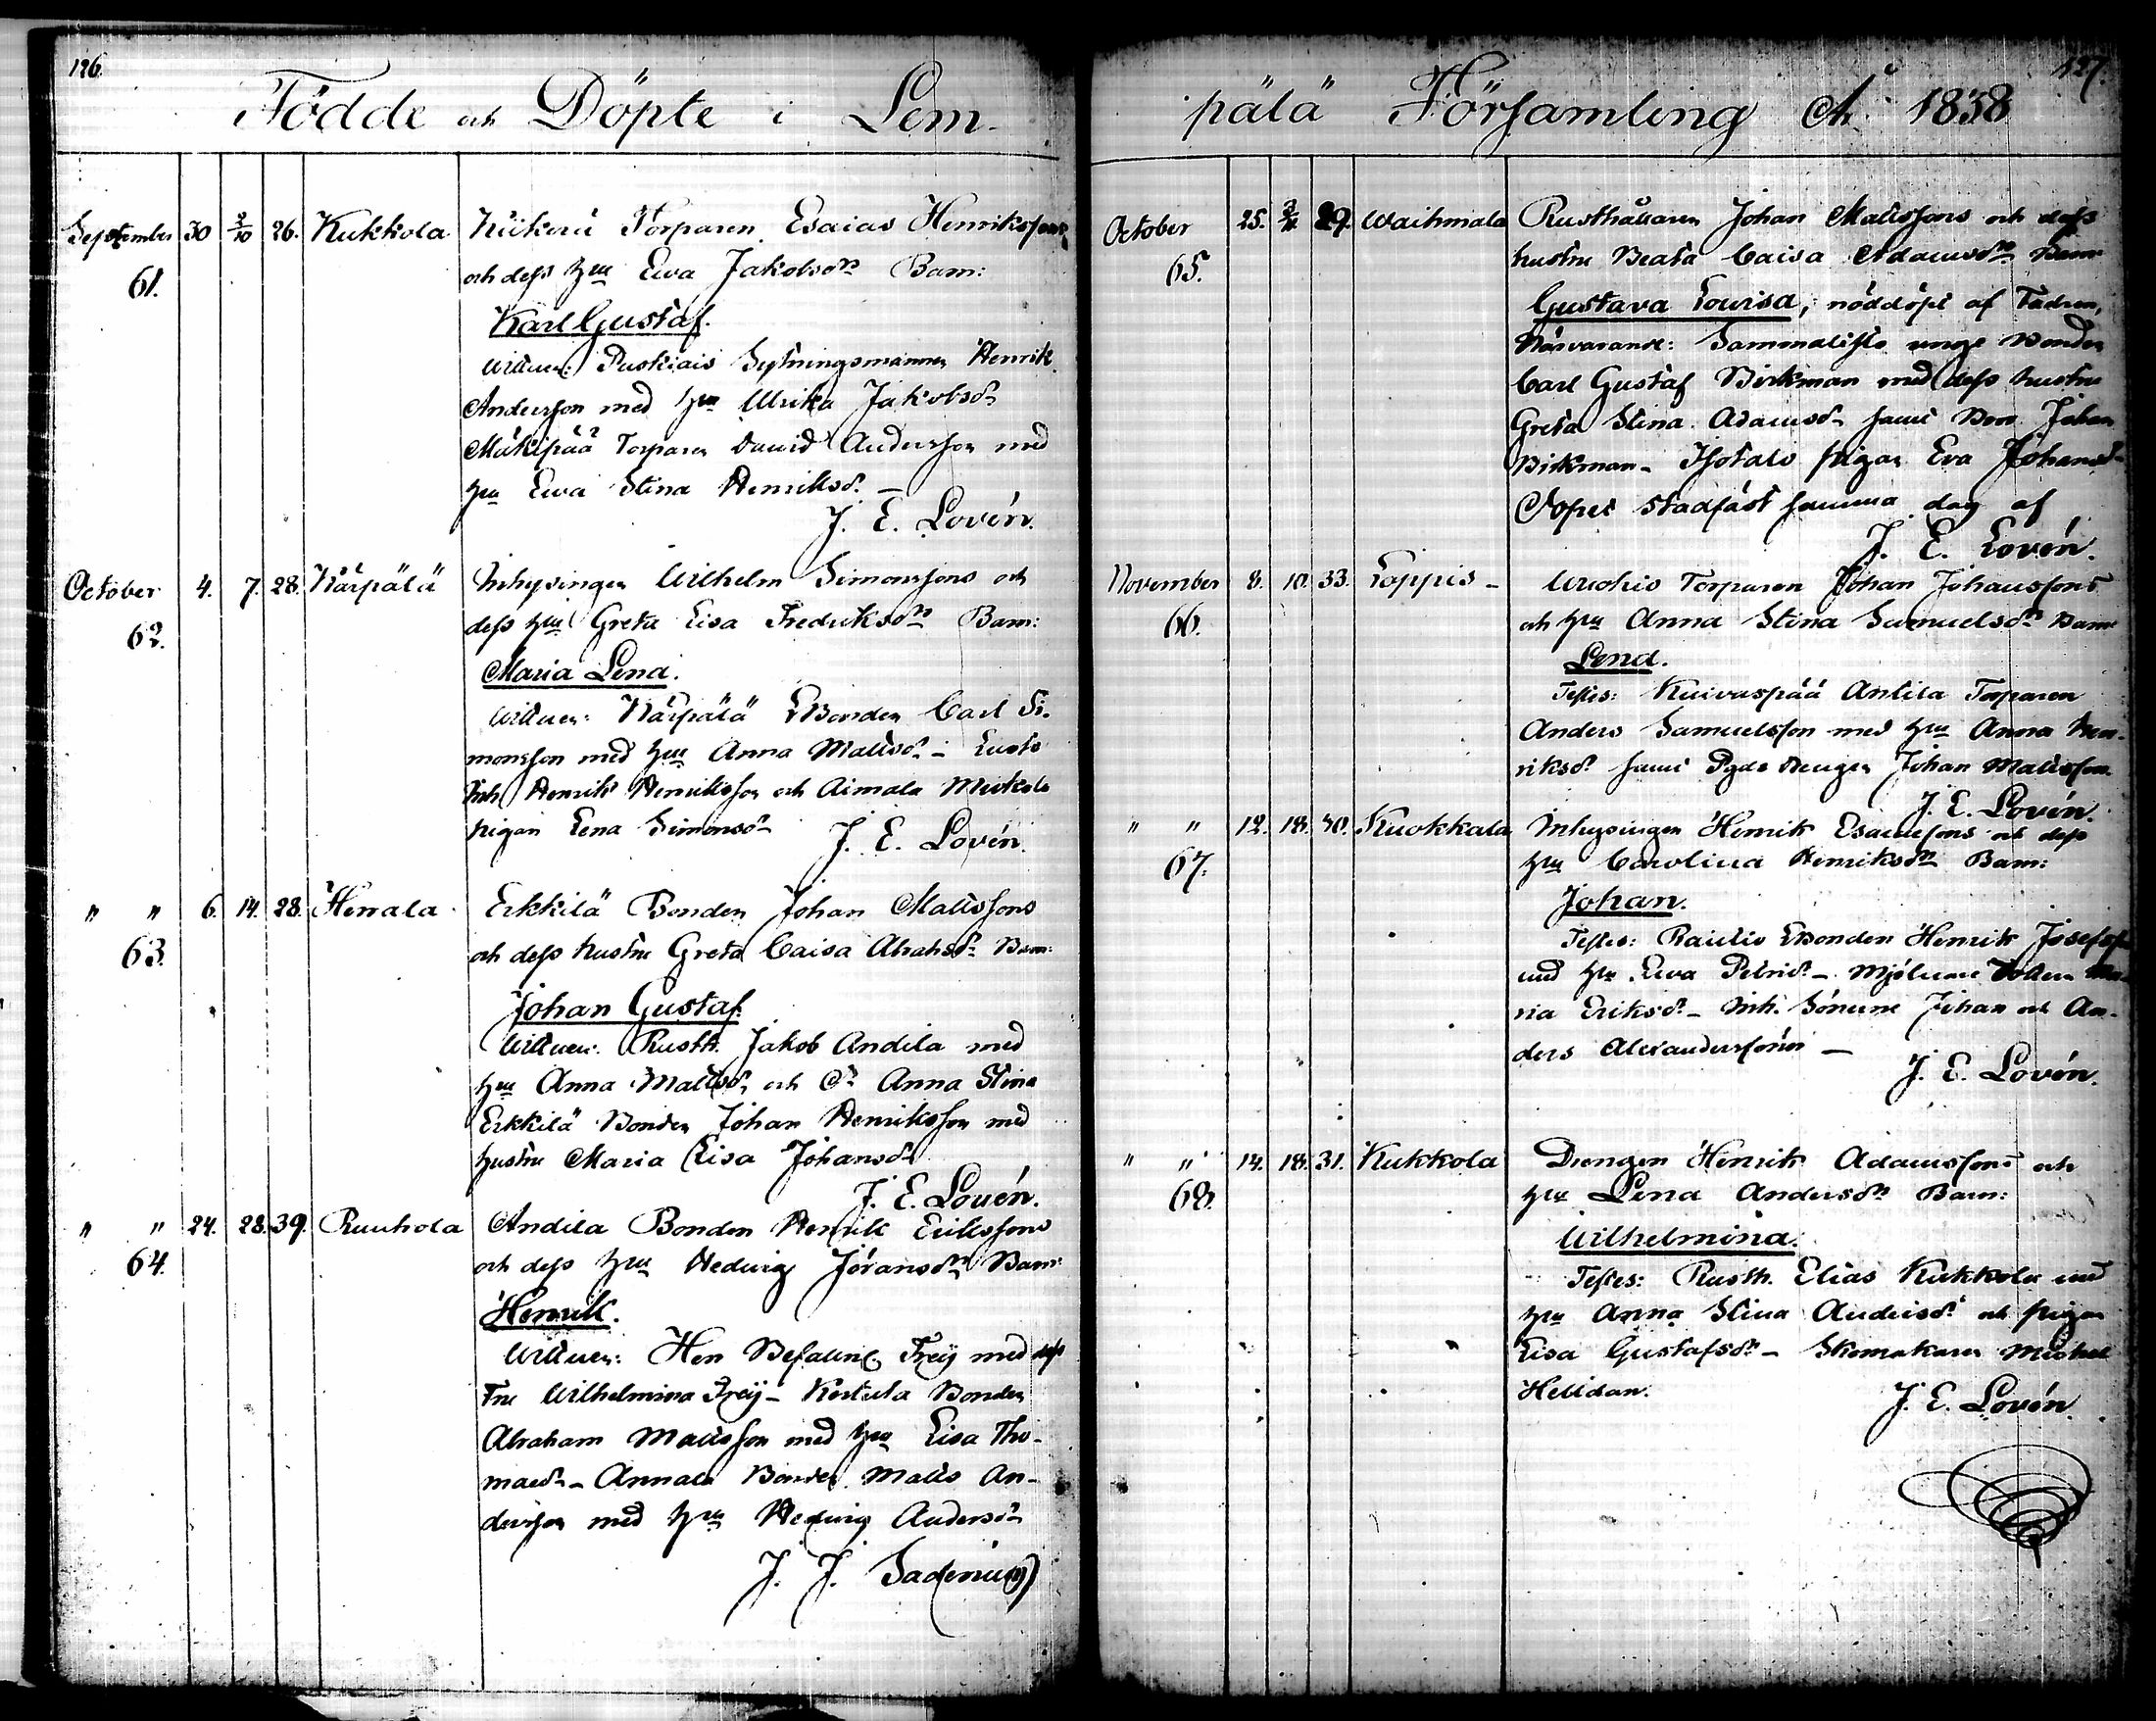 126.
Födde och Döpte i Lem-
September 30 2/10 26. Kukkola Torparen Esaias Henrikssons
61. och dess hu Ewa Jakobsdr Barn:
Karl Gustaf.
Wittnen: Syttningsmannen Henrik
Andersson med hu Ulrika Jakobsdr
Mäkipää Torparen David Andersson med
hu Ewa Stina Henriksdr. –
J. E. Lovén.
October 4. 7. 28. Närpälä Inhysingen Wilhelm Simonssons och
62. dess hu Greta Lisa Fredriksdr Barn:
Maria Lena.
Wittnen: Närpälä Bonden Carl Si-
monsson med hu Anna Mattsdr –
Henrik Henriksson och Aimala
pigan Lena Simonsdr J. E. Lovén.
" " 6. 14. 28. Herrala Erkkilä Bonden Johan Mattssons
63. och dess hustru Greta Caisa Abrahsdr Barn:
Johan Gustaf.
Wittnen: Rusth. Jakob Andila med
hu Anna Mattsdr och Dr Anna Stina
Erkkilä Bonden Johan Henriksson med
hustru Maria Lisa Johansdr
J. E. Lovén.
" " 24. 28. 39. Ruuhola Andila Bonden Henrik Erikssons
64. och dess hu Hedwig Jöransdr Barn:
Henrik.
Wittnen: Herr Befalln. Freij med dess
Fru Wilhelmina Freij – Bonden
Abraham Mattsson med hu Lisa Tho-
maedr – Annala Bonden Matts An-
dersson med hu Hedwig Andersdr
J. J. Sadenius
127.
pälä Församling År 1838
October 25. 29. Waihmala Rusthållaren Johan Mattssons och dess
65. hustru Beata Caisa Adamsdr Barn
Gustava Lovisa, nöddöpt af Fadren,
Närvarande: unge Bonden
Carl Gustaf Birkman med dess hustru
Greta Stina Adamsdr samt Johan
Birkman – Isotalo pigan Eva Johansdr
Dopet stadfäst samma dag af
J. E. Lovén.
November 8. 10. 33. Loppis – Torparen Johan Johanssons
66. och hu Anna Stina Samuelsdr Barn
Lena.
Testes: Kuivaspää Antila Torparen
Anders Samuelsson med hu Anna Hen-
riksdr samt Drengen Johan Mattsson.
J. E. Lovén.
" " 12. 18. 40. Kuokkala Inhysingen Henrik Esaiassons och dess
67. hu Carolina Henriksdr Barn:
Johan.
Testes: Bonden Henrik Josefss
med hu Ewa –
ria Eriksdr – Inh. Sönerne Johan och An-
ders Alexanderssöner –
J. E. Lovén.
" " 14. 18. 31. Kukkola Drengen Henrik Adamssons och
68. hu Lena Andersdr Barn:
Wilhelmina.
Testes: Rusth. Elias Kukkola med
hu Anna Stina Andersdr och pigan
Lisa Gustafsdr – Skomakaren Michel
Hellidan. J. E. Lovén.